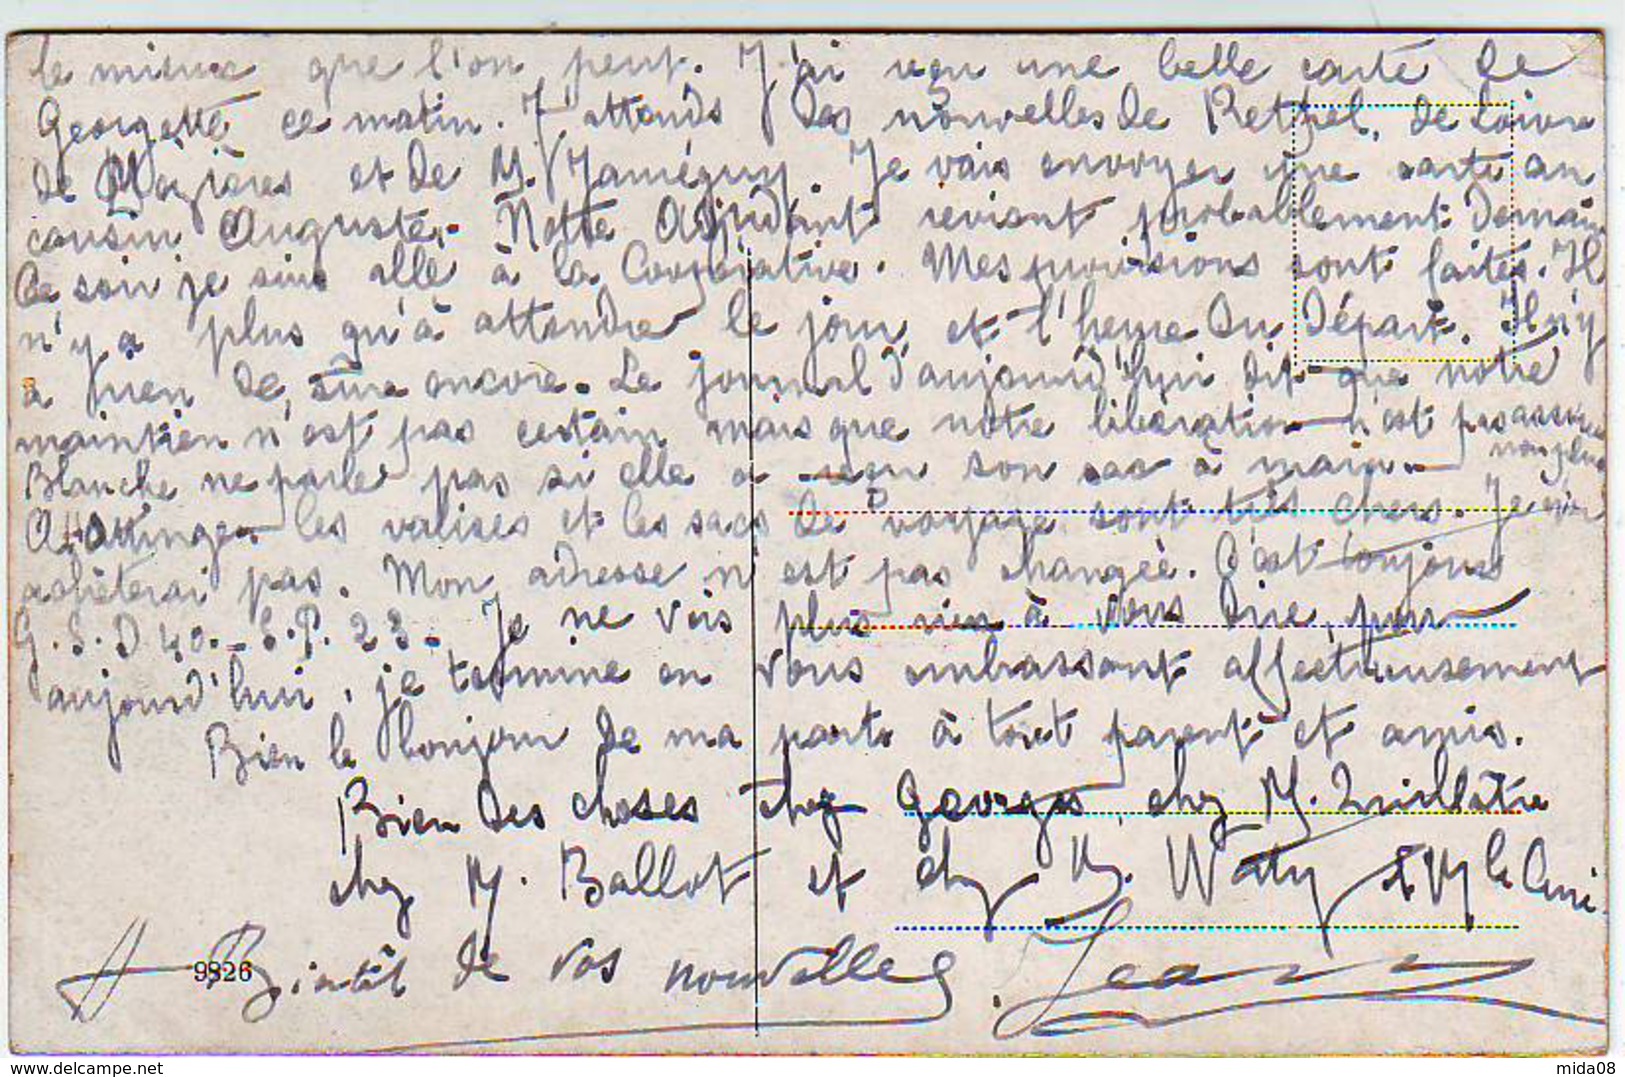 le mieux que l'on peut. J'ai reçu une belle carte de
Georgette ce matin. J'attends des nouvelles de Rethel, de Loivre
de Mézières et de M. Jamégny. Je vais envoyer une carte au
cousin Auguste. Notre Adjudant revient probablement demain
Ce soir je suis allé à la Coopérative. Mes provisions sont faites. Il
n'y a plus qu'à attendre le jour et l'heure du départ. Il n'y
a rien de sûr encore. Le journal d'aujourd'hui dit que notre
maintien n'est pas certain mais que notre libération n'est pas assurée
non plus
Blanche ne parle pas si elle a reçu son sac à main.
A les valises et les sacs de voyage sont très chers. Je n'en
achèterai pas. Mon adresse n'est pas changée. C'est toujours
G.S.D 40. - S.P. 23. Je ne vois plus rien à vous dire, pour
aujourd'hui, je termine en vous embrassant affectueusement
Bien le bonjour de ma part à tout parent et amis.
Bien des choses chez Georges, chez M.
chez M. Ballot et chez M. Waty & M le Curé.
9826
Bientôt de vos nouvelles. Jean
mida08